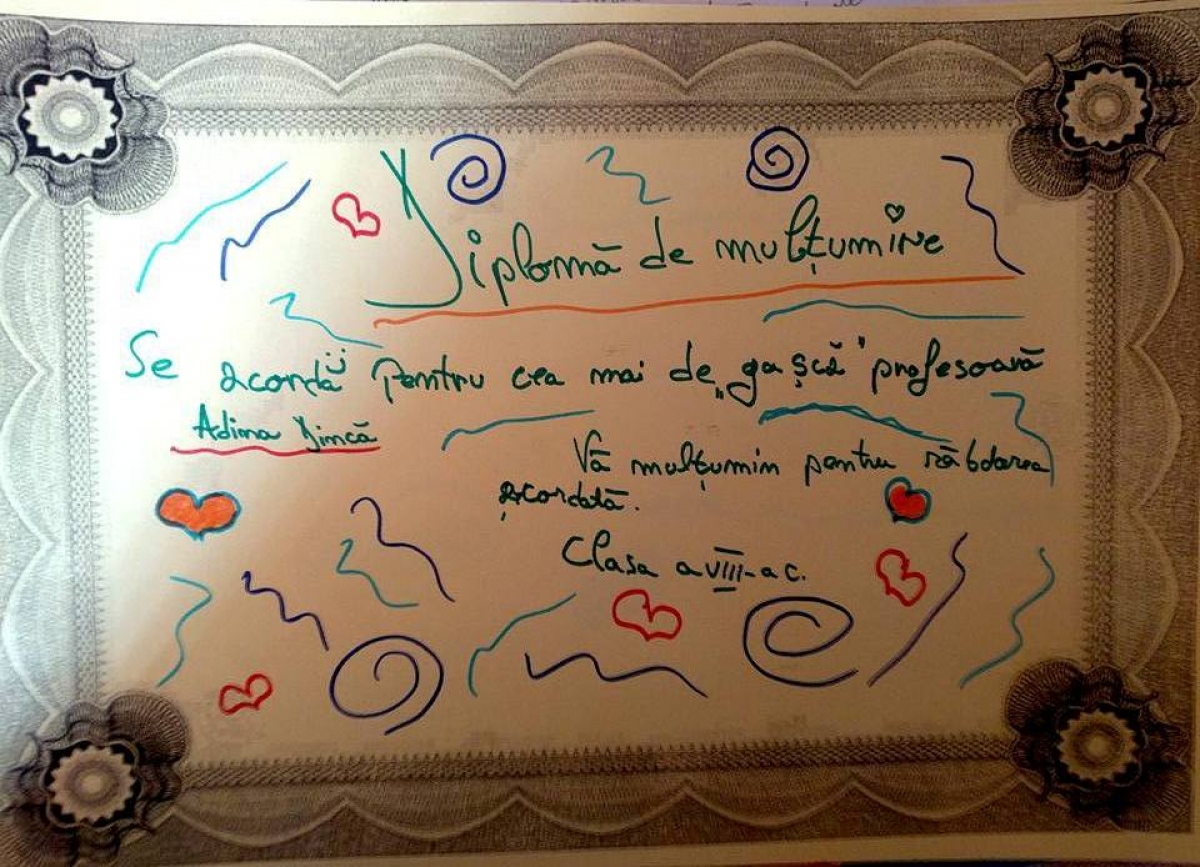 Diplomă de mulțumire
Se acordă pentru cea mai de „gașcă" profesoară
Adina Dincă
Vă mulțumin pentru răbdarea
acordată.
Clasa a VIII-a c.